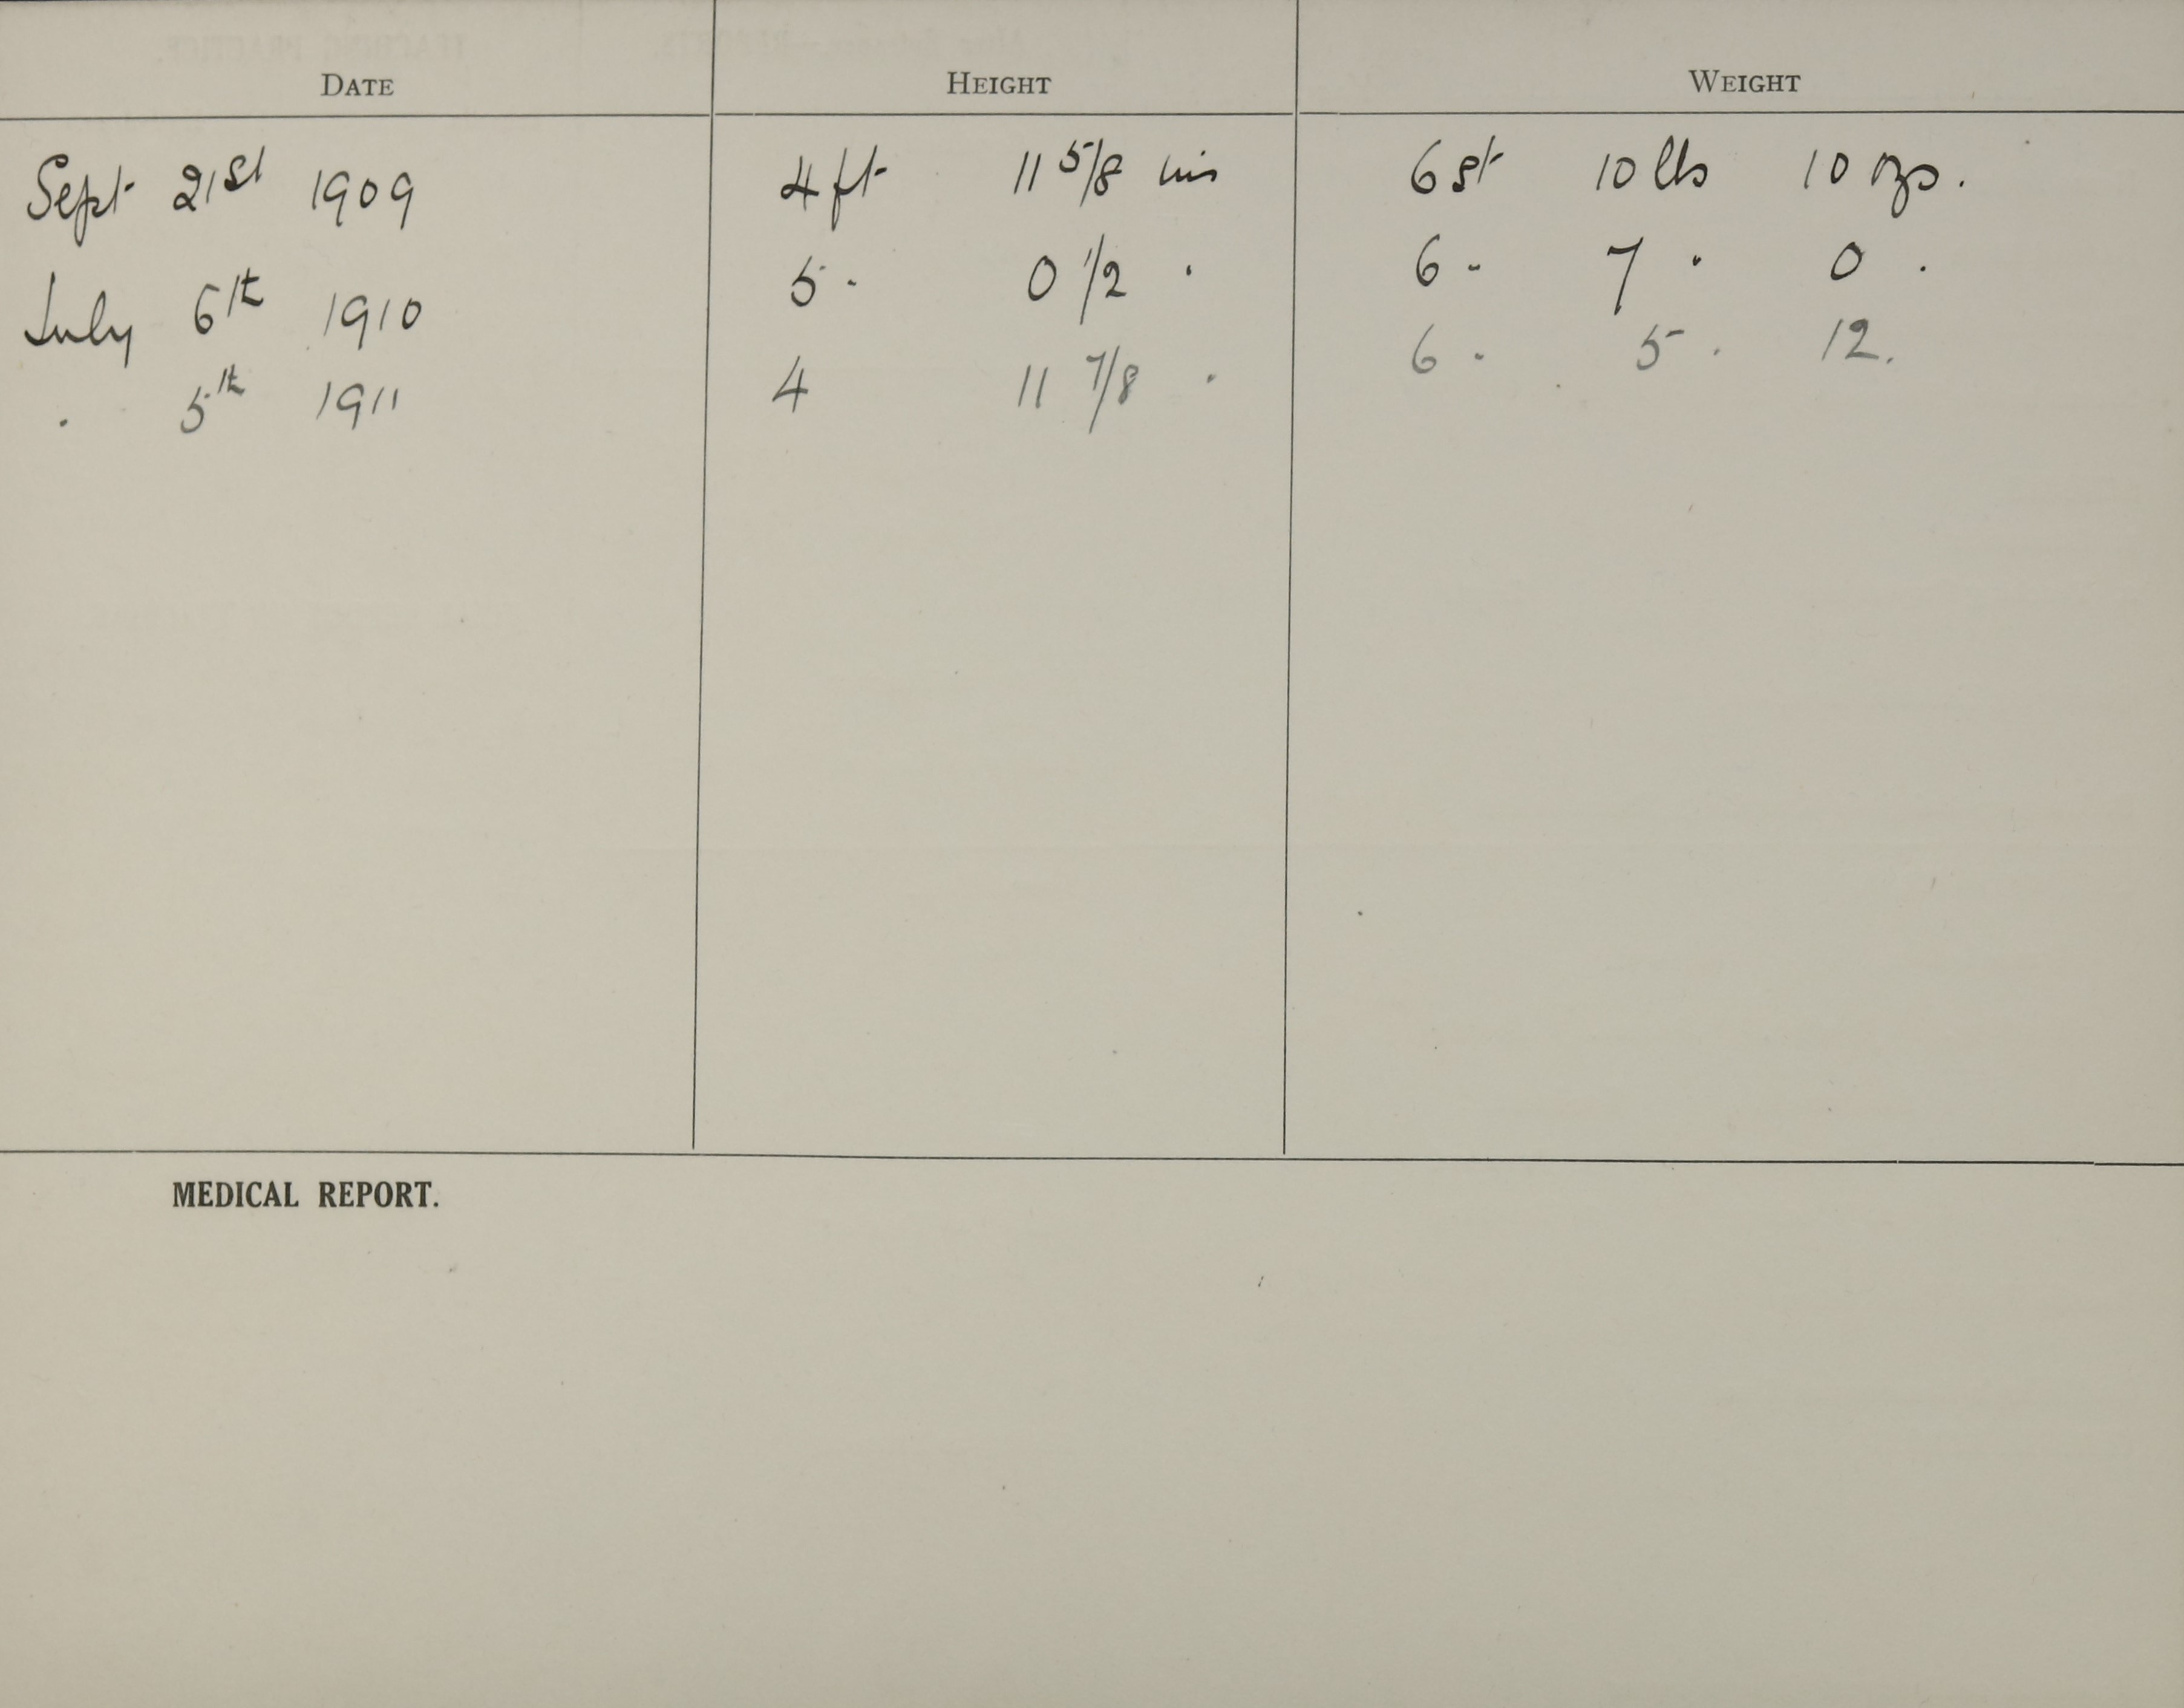 DATE HEIGHT WEIGHT
Sept 21st 1909 4 ft 11 5/8 ins 6 st 10 lbs 10 ozs.
July 6th 1910 5 - 0 1/2 " 6 - 7 " 0 .
" 5th 1911 4 11 7/8 " 6 - 5 . 12.
MEDICAL REPORT.